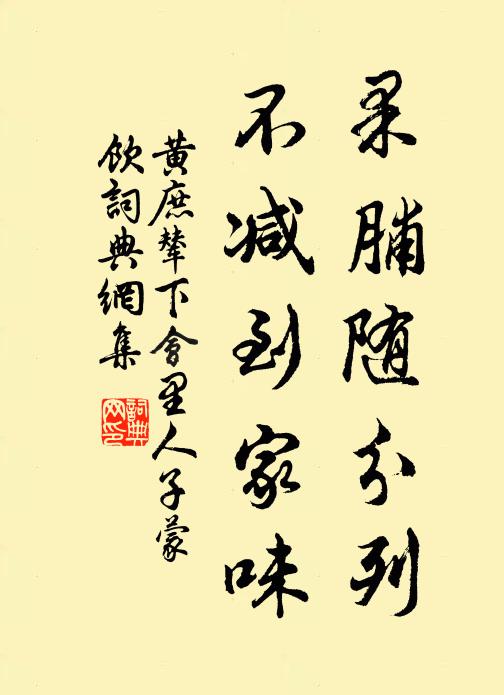 果脯随分列
不减到家味
黄庶輦下會里人子蒙
飲詞典網集
詞典网印